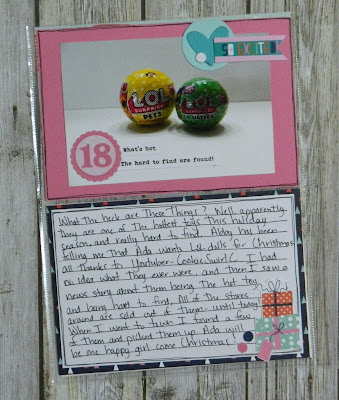 LOL
SURPRISE!
PETS
LOL
18
What's hot
The hard to find are found!
What the heck are These Things? Well apparently
they are one of the hottest toys this holiday
season, and really hard to find. Abby has been
telling me that Ada wants LoL dolls for Christmas
all thanks to Youtuber-Cookie Swirl C. I had
no idea what they ever were, and then I saw a
news story about them being The hot toy
and being hard to find. All of The stores
around are sold out of Them- until today
When I went to town I found a few
of Them and picked them up. Ada will
be one happy girl come Christmas!